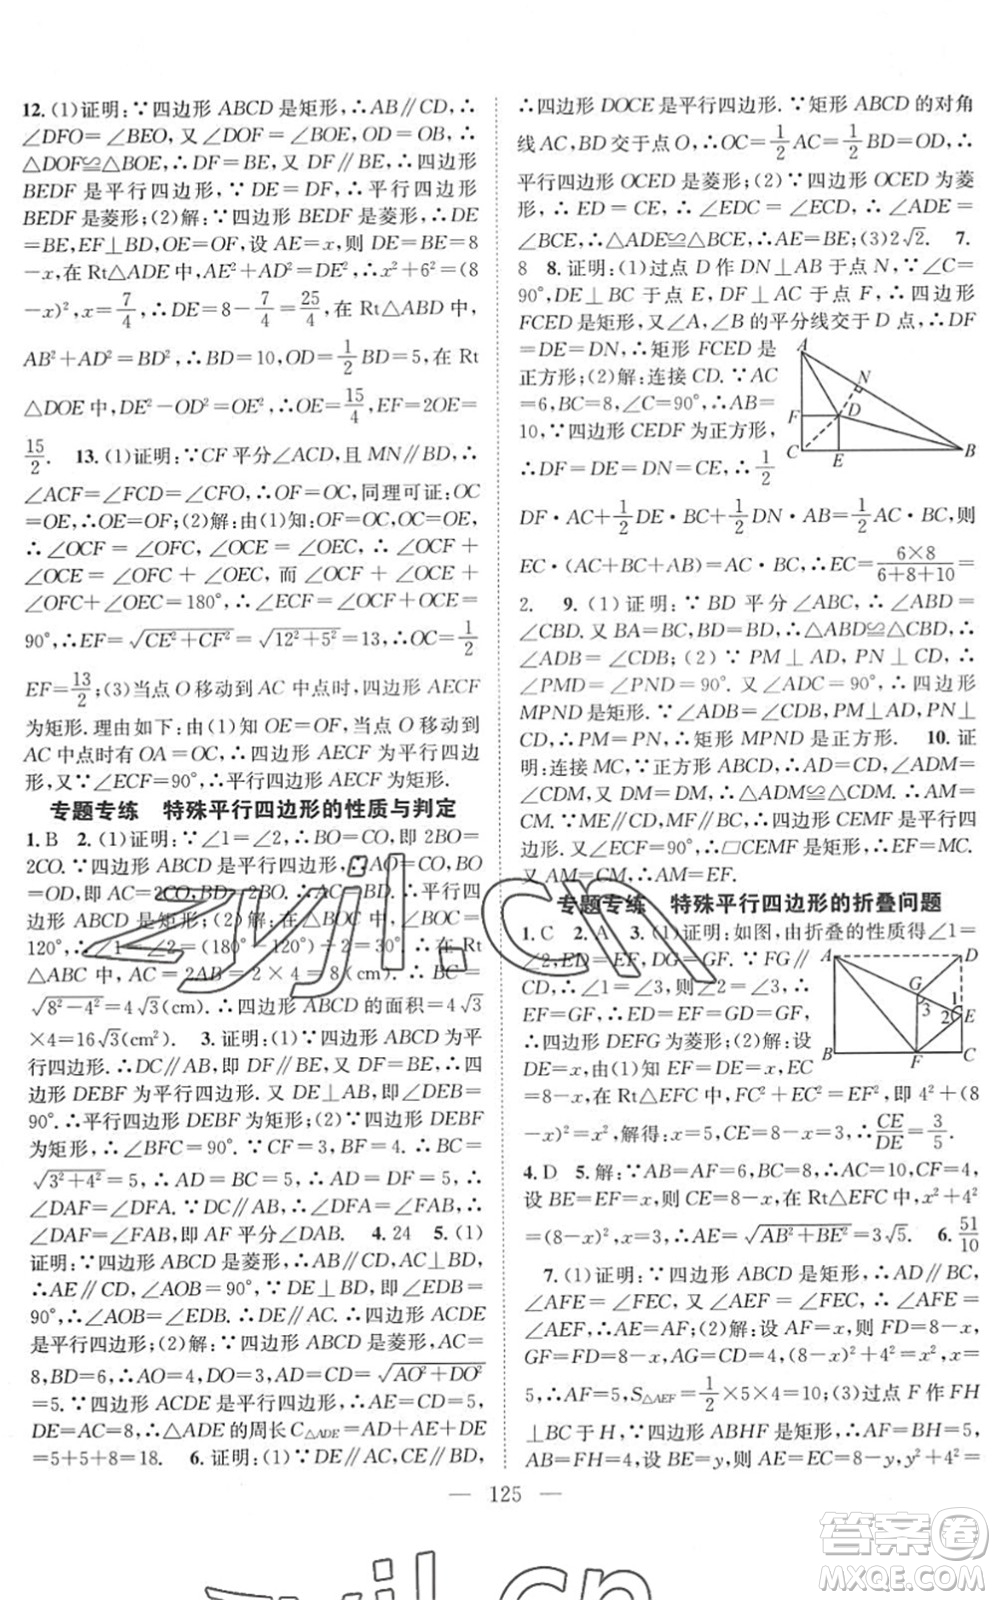 12. (1)证明:∵四边形 ABCD 是矩形,∴AB∥CD,∴
∠DFO=∠BEO,又∠DOF=∠BOE,OD=OB,∴
△DOF≌△BOE,∴DF=BE,又 DF∥BE,∴四边形
BEDF 是平行四边形,∵DE=DF,∴平行四边形
BEDF 是菱形;(2)解:∵四边形 BEDF 是菱形,∴DE
=BE,EF⊥BD,OE=OF,设 AE=x,则 DE=BE=8
-x,在 Rt△ADE 中,AE²+AD²=DE²,∴x²+6²=(8
-x)²,x=7/4,∴DE=8-7/4=25/4,在 Rt△ABD 中,
AB²+AD²=BD²,∴BD=10,OD=1/2BD=5,在 Rt
△DOE 中,DE²-OD²=OE²,∴OE=15/4,EF=2OE=
15/2. 13. (1)证明:∵CF 平分∠ACD,且 MN∥BD,∴
∠ACF=∠FCD=∠CFO,∴OF=OC,同理可证:OC
=OE,∴OE=OF;(2)解:由(1)知:OF=OC,OC=OE,
∴∠OCF=∠OFC,∠OCE=∠OEC,∴∠OCF+
∠OCE=∠OFC+∠OEC,而∠OCF+∠OCE+
∠OFC+∠OEC=180°,∴∠ECF=∠OCF+∠OCE=
90°,∴EF=√(CE²+CF²)=√(12²+5²)=13,∴OC=1/2
EF=13/2;(3)当点 O 移动到 AC 中点时,四边形 AECF
为矩形.理由如下:由(1)知 OE=OF,当点 O 移动到
AC 中点时有 OA=OC,∴四边形 AECF 为平行四边
形,又∵∠ECF=90°,∴平行四边形 AECF 为矩形.
专题专练 特殊平行四边形的性质与判定
1. B 2. (1)证明:∵∠1=∠2,∴BO=CO,即 2BO=
2CO.∵四边形 ABCD 是平行四边形,∴AO=CO,BO
=OD,即 AC=2CO,BD=2BO,∴AC=BD,∴平行四
边形 ABCD 是矩形;(2)解:在△BOC 中,∵∠BOC=
120°,∴∠1=∠2=(180°-120°)÷2=30°,∴在 Rt
△ABC 中,AC=2AB=2×4=8(cm),∴BC=
√(8²-4²)=4√3(cm).∴四边形 ABCD 的面积=4√3
×4=16√3(cm²) 3. 证明:(1)∵四边形 ABCD 为平
行四边形,∴DC∥AB,即 DF∥BE,又∵DF=BE,∴四
边形 DEBF 为平行四边形.又 DE⊥AB,∴∠DEB=
90°.∴平行四边形 DEBF 为矩形;(2)∵四边形 DEBF
为矩形,∴∠BFC=90°.∵CF=3,BF=4.∴BC=
√(3²+4²)=5,∴AD=BC=5,∴AD=DF=5,∴
∠DAF=∠DFA.∵AB∥CD,∴∠FAB=∠DFA,∴
∠DAF=∠BAF,即 AF 平分∠DAB. 4. 24 5. (1)
证明:∵四边形 ABCD 是菱形,∴AB∥CD,AC⊥BD,
∴AE∥CD,∠AOB=90°,∵DE⊥BD,即∠EDB=
90°,∴∠AOB=∠EDB.∴DE∥AC.∴四边形 ACDE
是平行四边形;(2)解:∵四边形 ABCD 是菱形,AC=
8,BD=6,∴AO=4,DO=3,AD=CD=√(AO²+DO²)
=5.∵四边形 ACDE 是平行四边形,∴AE=CD=5,
DE=AC=8,∴△ADE 的周长 C△ADE=AD+AE+DE
=5+5+8=18. 6. 证明:(1)∵DE∥AC,CE∥BD,
∴四边形 DOCE 是平行四边形.∵矩形 ABCD 的对角
线 AC,BD 交于点 O,∴OC=1/2AC=1/2BD=OD,∴
平行四边形 OCED 是菱形;(2)∵四边形 OCED 为菱
形,∴ED=CE,∴∠EDC=∠ECD,∴∠ADE=
∠BCE,∴△ADE≌△BCE,∴AE=BE;(3)2√2. 7.
8 8. 证明:(1)过点 D 作 DN⊥AB 于点 N,∵∠C=
90°,DE⊥BC 于点 E,DF⊥AC 于点 F,∴四边形
FCED 是矩形,又∠A,∠B 的平分线交于 D 点,∴DF
=DE=DN,∴矩形 FCED 是
正方形;(2)解:连接 CD.∵AC
=6,BC=8,∠C=90°,∴AB=
10,∵四边形 CEDF 为正方形,
∴DF=DE=DN=CE,∴1/2
A
N
F
D
C
E
B
DF·AC+1/2DE·BC+1/2DN·AB=1/2AC·BC,则
EC·(AC+BC+AB)=AC·BC,∴EC=6×8/(6+8+10)=
2. 9. (1)证明:∵BD 平分∠ABC,∴∠ABD=
∠CBD.又 BA=BC,BD=BD,∴△ABD≌△CBD.∴
∠ADB=∠CDB;(2)∵PM⊥AD,PN⊥CD,∴
∠PMD=∠PND=90°.又∠ADC=90°,∴四边形
MPND 是矩形.∵∠ADB=∠CDB,PM⊥AD,PN⊥
CD,∴PM=PN,∴矩形 MPND 是正方形. 10. 证
明:连接 MC,∵正方形 ABCD,∴AD=CD,∠ADM
=∠CDM,又 DM=DM,∴△ADM≌△CDM,∴AM=
CM.∵ME∥CD,MF∥BC,∴四边形 CEMF 是平行四
边形.又∠ECF=90°,∴□CEMF 是矩形,∴EF=MC.
又 AM=CM,∴AM=EF.
专题专练 特殊平行四边形的折叠问题
1. C 2. A 3. (1)证明:如图,由折叠的性质得∠1=
∠2,ED=EF,GD=GF.∵FG∥
CD,∴∠1=∠3,则∠2=∠3,∴
EF=GF,∴EF=ED=GD=GF,
∴四边形 DEFG 为菱形;(2)解:设
DE=x,由(1)知 EF=DE=x,EC
A
D
G
3
1
2
E
B
F
C
=8-x,在 Rt△EFC 中,FC²+EC²=EF²,即 4²+(8
-x)²=x²,解得:x=5,CE=8-x=3,∴CE/DE=3/5.
4. D 5. 解:∵AB=AF=6,BC=8,∴AC=10,CF=4,
设 BE=EF=x,则 CE=8-x,在 Rt△EFC 中,x²+4²
=(8-x)²,∴x=3,∴AE=√(AB²+BE²)=3√5. 6. 51/10
7. (1)证明:∵四边形 ABCD 是矩形,∴AD∥BC,∴
∠AFE=∠FEC,又∠AEF=∠FEC,∴∠AFE=
∠AEF,∴AE=AF;(2)解:设 AF=x,则 FD=8-x,
GF=FD=8-x,AG=CD=4,(8-x)²+4²=x²,x=
5,∴AF=5,S△AEF=1/2×5×4=10;(3)过点 F 作 FH
⊥BC 于 H,∵四边形 ABHF 是矩形,∴AF=BH=5,
AB=FH=4,设 BE=y,则 AE=EC=8-y,y²+4²=
— 125 —
zyjl.cn
zyjl.cn
答案圈
MXQE.COM